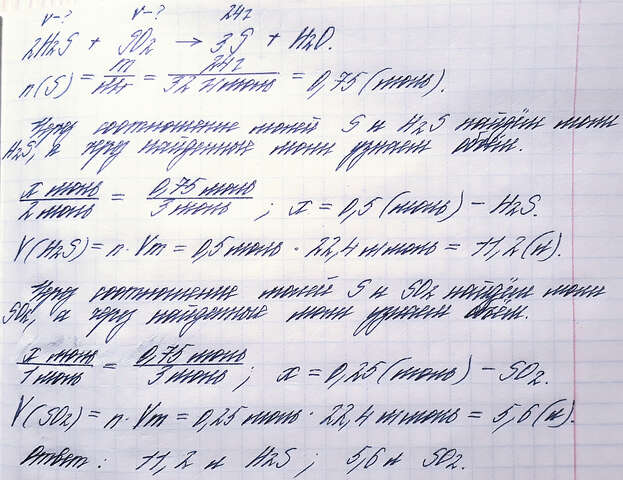 V-? V-? 24г
2H2S + SO2 → 3S + H2O.
n(S) = m/Mr = 24г/32 г/моль = 0,75 (моль).
Через соотношение молей S и H2S найдём моли
H2S, а через найденные моли узнаем объём.
x моль/2 моль = 0,75 моль/3 моль ; x = 0,5 (моль) – H2S.
V(H2S) = n · Vm = 0,5 моль · 22,4 л/моль = 11,2 (л).
Через соотношение молей S и SO2 найдём моли
SO2, а через найденные моли узнаем объём.
x моль/1 моль = 0,75 моль/3 моль ; x = 0,25 (моль) – SO2.
V(SO2) = n · Vm = 0,25 моль · 22,4 л/моль = 5,6 (л).
Ответ: 11,2 л H2S ; 5,6 л SO2.